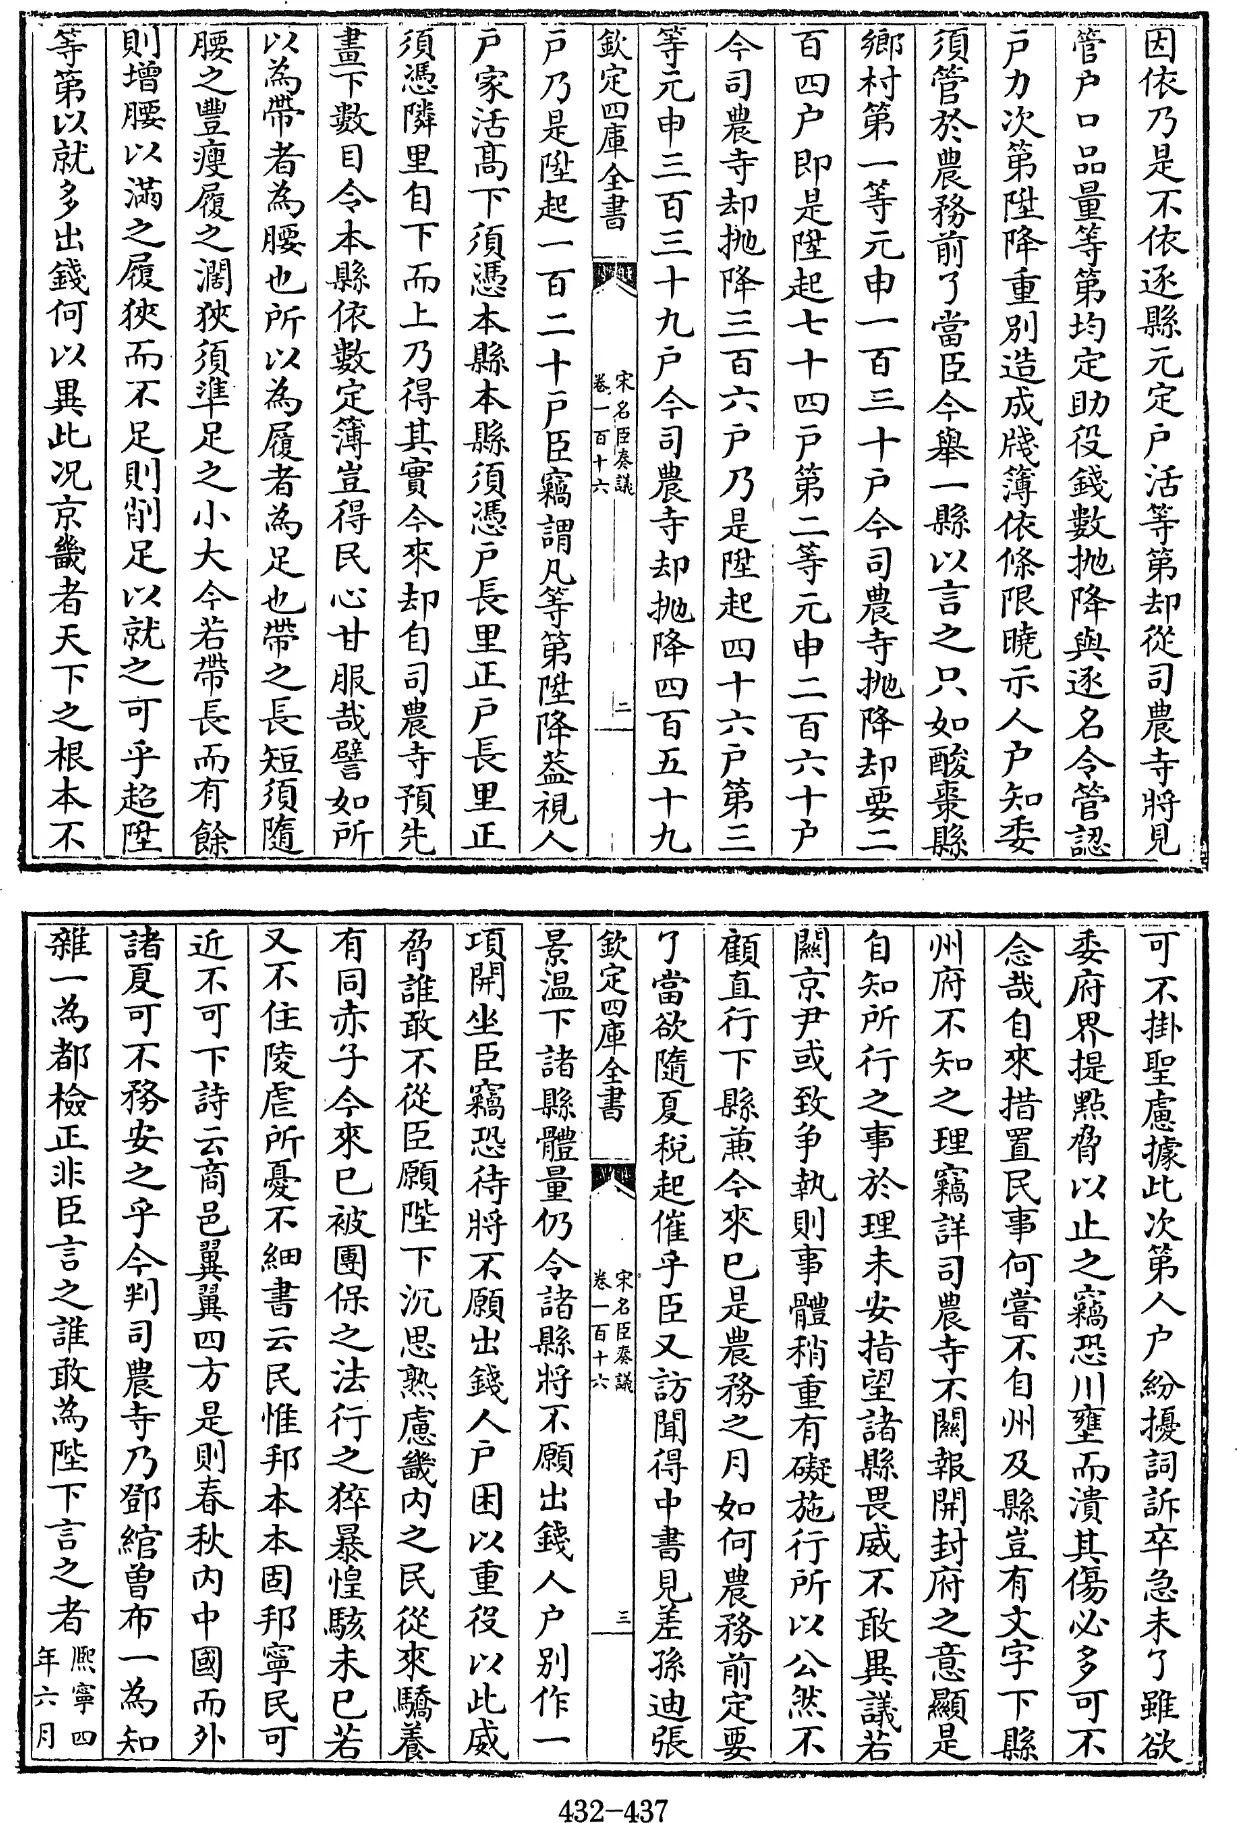 因依乃是不依逐縣元定戸活等第却從司農寺將見
管戸口品量等第均定助役錢數抛降與逐名令管認
戸力次第陞降重別造成牋簿依條限曉示人户知委
須管於農務前了當臣今舉一縣以言之只如酸棗縣
鄉村第一等元申一百三十戸今司農寺抛降却要二
百四户即是陞起七十四戸第二等元申二百六十户
今司農寺却抛降三百六戸乃是陞起四十六戸第三
等元申三百三十九戸今司農寺却抛降四百五十九
欽定四庫全書
宋名臣奏議
卷一百十六
二
戸乃是陞起一百二十戸臣竊謂凡等第陞降葢視人
戸家活髙下須憑本縣本縣須憑戸長里正戸長里正
須憑隣里自下而上乃得其實今來却自司農寺預先
畫下數目令本縣依數定簿豈得民心甘服哉譬如所
以為帶者為腰也所以為履者為足也帶之長短須隨
腰之豐瘦履之濶狹須準足之小大今若帶長而有餘
則增腰以滿之履狹而不足則削足以就之可乎超陞
等第以就多出錢何以異此况京畿者天下之根本不
可不掛聖慮據此次第人户紛擾詞訴卒急未了雖欲
委府界提㸃脅以止之竊恐川壅而潰其傷必多可不
念哉自來措置民事何嘗不自州及縣豈有文字下縣
州府不知之理竊詳司農寺不關報開封府之意顯是
自知所行之事於理未安指望諸縣畏威不敢異議若
關京尹或致争執則事體稍重有礙施行所以公然不
顧直行下縣兼今來已是農務之月如何農務前定要
了當欲隨夏税起催乎臣又訪聞得中書見差孫迪張
欽定四庫全書
宋名臣奏議
卷一百十六
三
景温下諸縣體量仍令諸縣將不願出錢人户别作一
項開坐臣竊恐待將不願出錢人户困以重役以此威
脅誰敢不從臣願陛下沉思熟慮畿内之民從來驕養
有同赤子今來已被團保之法行之猝暴惶駭未已若
又不住陵虐所憂不細書云民惟邦本本固邦寧民可
近不可下詩云商邑翼翼四方是則春秋内中國而外
諸夏可不務安之乎今判司農寺乃鄧綰曾布一為知
雜一為都檢正非臣言之誰敢為陛下言之者
熈寧四
年六月
432-437